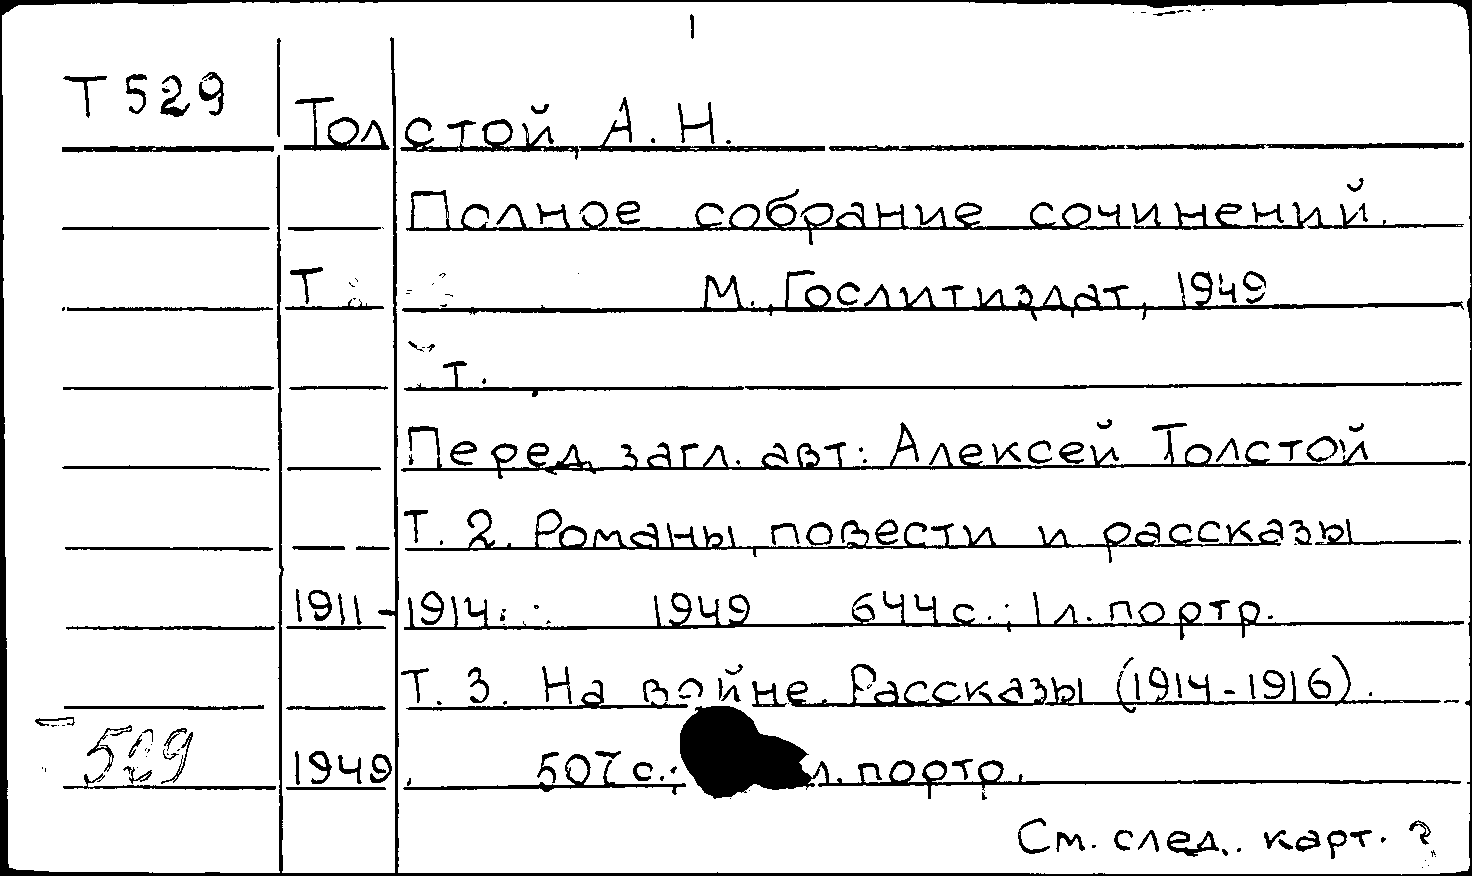 Т529
Толстой, А. Н.
Полное собрание сочинений.
Т М., Гослитиздат, 1949
т.
Перед загл. авт: Алексей Толстой
Т. 2. Романы, повести и рассказы
1911-1914. 1949 644с.; 1л. портр.
Т. 3. На войне. Рассказы (1914-1916).
Т529
1949. 507с.; л. портр.
См. след. карт.